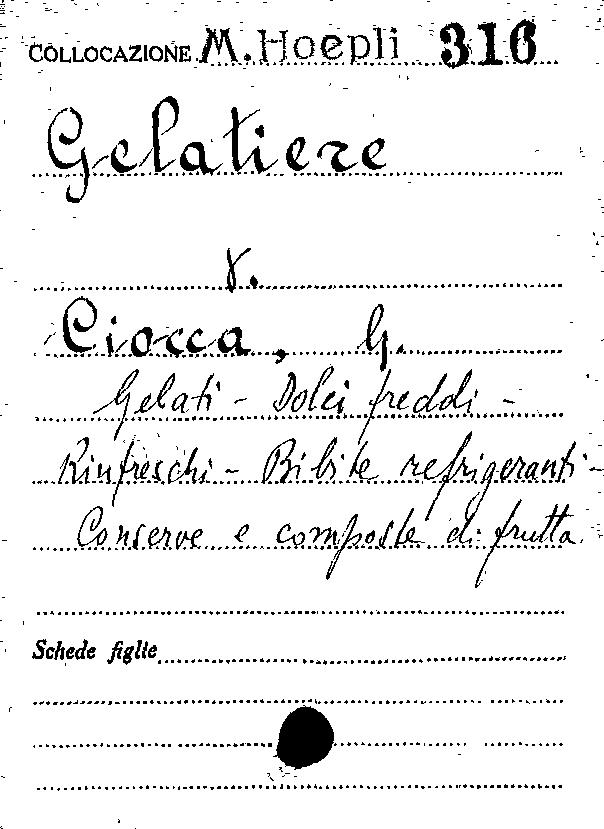 COLLOCAZIONE M. Hoepli 316
Gelatiere
v.
Ciocca, G.
Gelati - Dolci freddi -
Rinfreschi - Bibite refrigeranti -
Conserve e composte di frutta.
Schede figlie